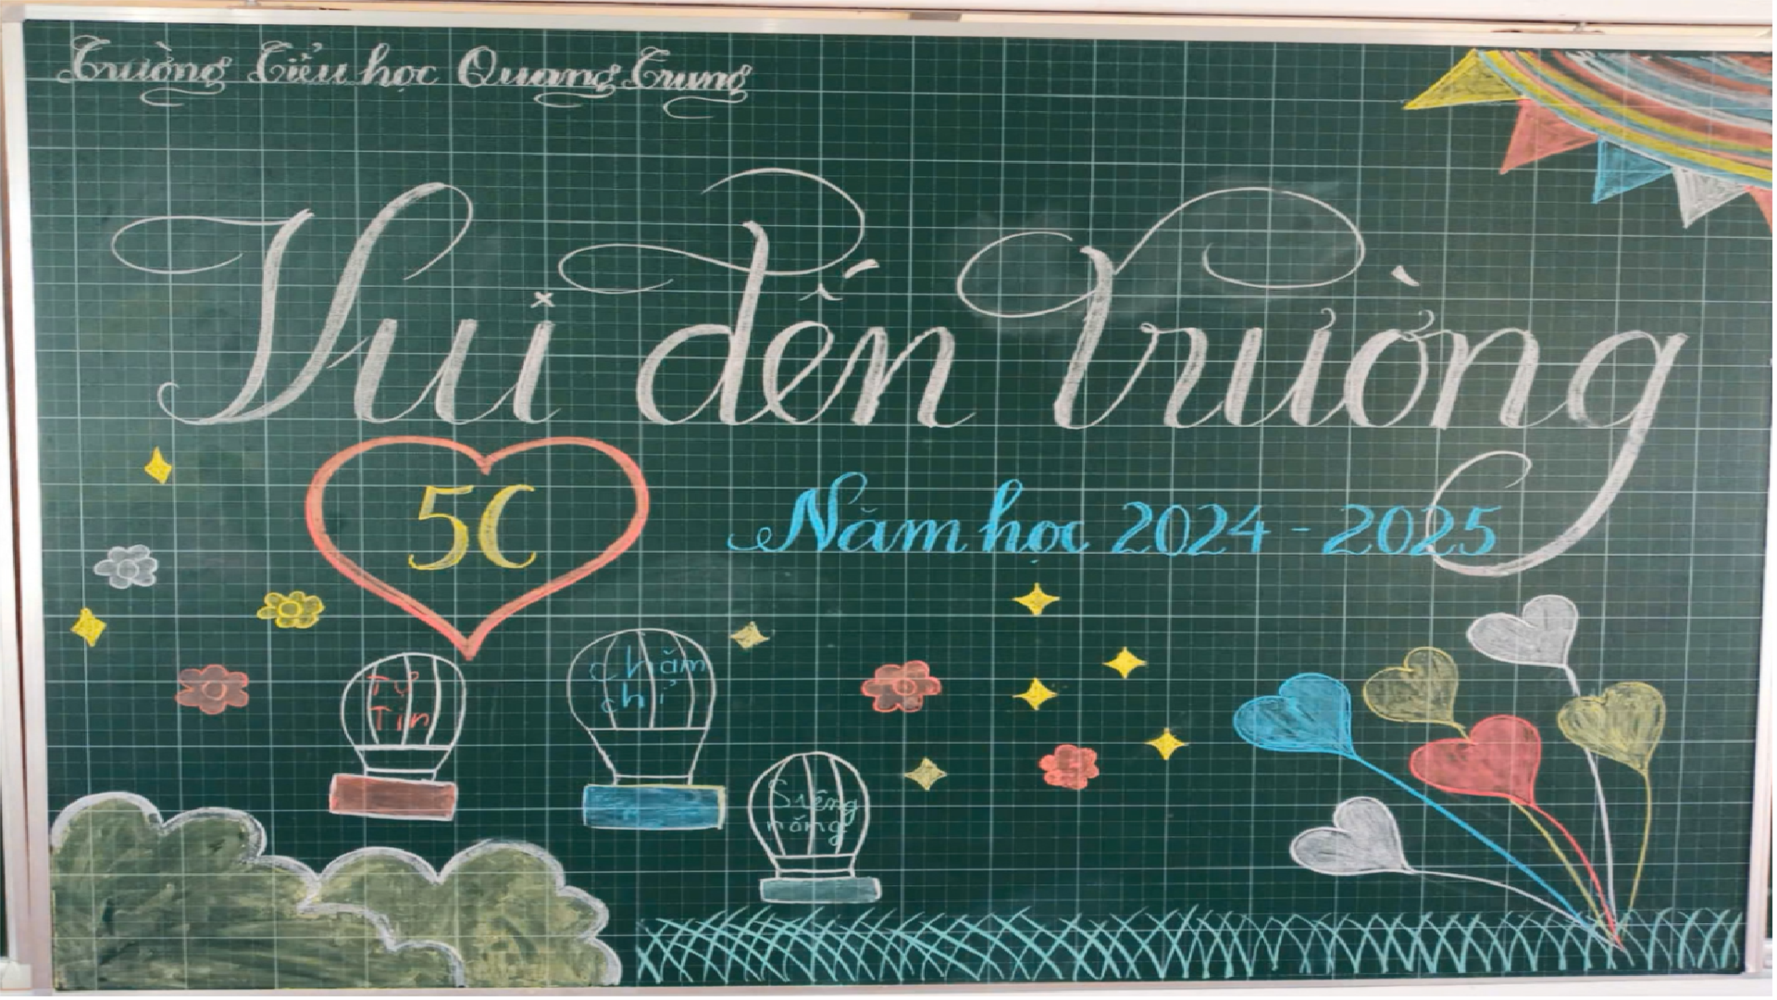 Trường Tiểu học Quang Trung
Vui đến trường
5C
Năm học 2024 - 2025
Tự
Tin
chăm
chỉ
Siêng
năng